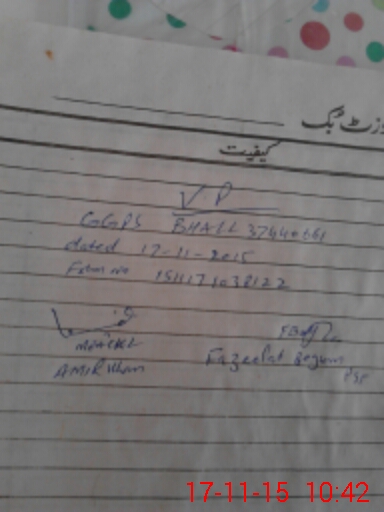 وزٹ بک
کیفیت
V P
GGPS BHALL 37440661
dated 17-11-2015
Form no 1511171038122
AMIR Khan
Fazeelat Begum
PST
17-11-15 10:42